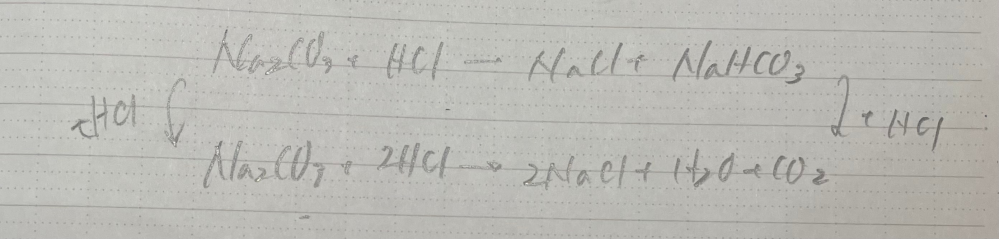 Na₂CO₃ + HCl → NaCl + NaHCO₃
+HCl
+ HCl
Na₂CO₃ + 2HCl → 2NaCl + H₂O + CO₂